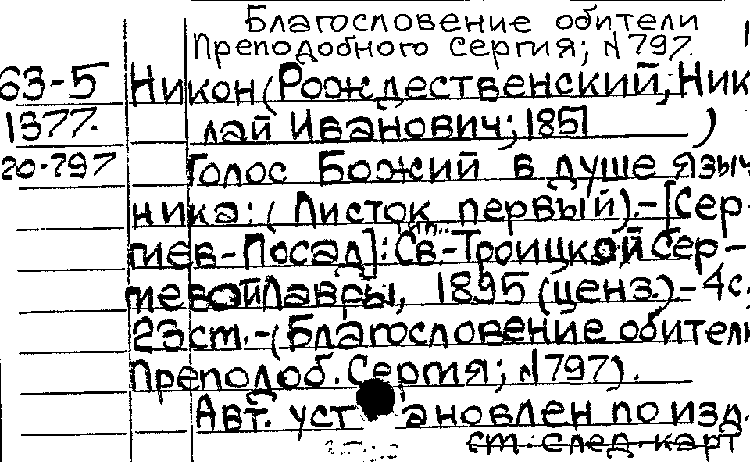 Благословение обители
Преподобного Сергия; N 797.
63-5 Никон (Рождественский, Ник
1377. лай Иванович; 1851 )
20-797 Голос Божий в душе языч
ника: (Листок первый).-[Сер-
гиев-Посад]: тип. Св.-Троицкой Сер-
гиевой Лавры, 1895 (ценз.).-4с.
23см.-(Благословение обители
Преподоб. Сергия; N 797).
Авт. установлен по изд.
см. след. карт